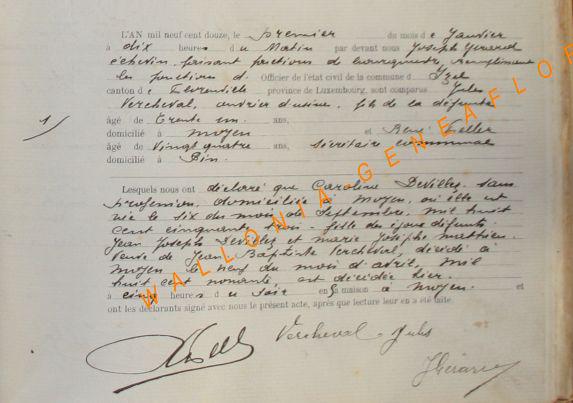 L'AN mil neuf cent douze, le premier du mois de Janvier
à dix heures du Matin par devant nous Joseph Gerard
échevin, faisant fonctions de bourgmestre, remplissant
les fonctions d. Officier de l'état civil de la commune d Izel
canton de Florenville province de Luxembourg, sont comparus Jules
Vercheval, ouvrier d'usine, fils de la défunte
1/
âgé de trente un ans,
domicilié à moyen et René
âgé de vingt quatre ans, secrétaire communal
domicilié à
Lesquels nous ont déclaré que Caroline Devillez, sans
profession, domiciliée à moyen, où elle est
née le six du mois de Septembre, mil huit
cent cinquante trois - fille des époux défunts
Jean Joseph Devillez et marie Josèphe matthieu.
Veuve de Jean Baptiste Vercheval, décédé à
moyen le neuf du mois d'avril, mil
huit cent nonante, est décédée hier.
à cinq heures du Soir en sa maison à moyen. et
ont les déclarants signé avec nous le présent acte, après que lecture leur en a été faite.
Vercheval Jules
JGérard
WALLONIA-GENEAFLOR